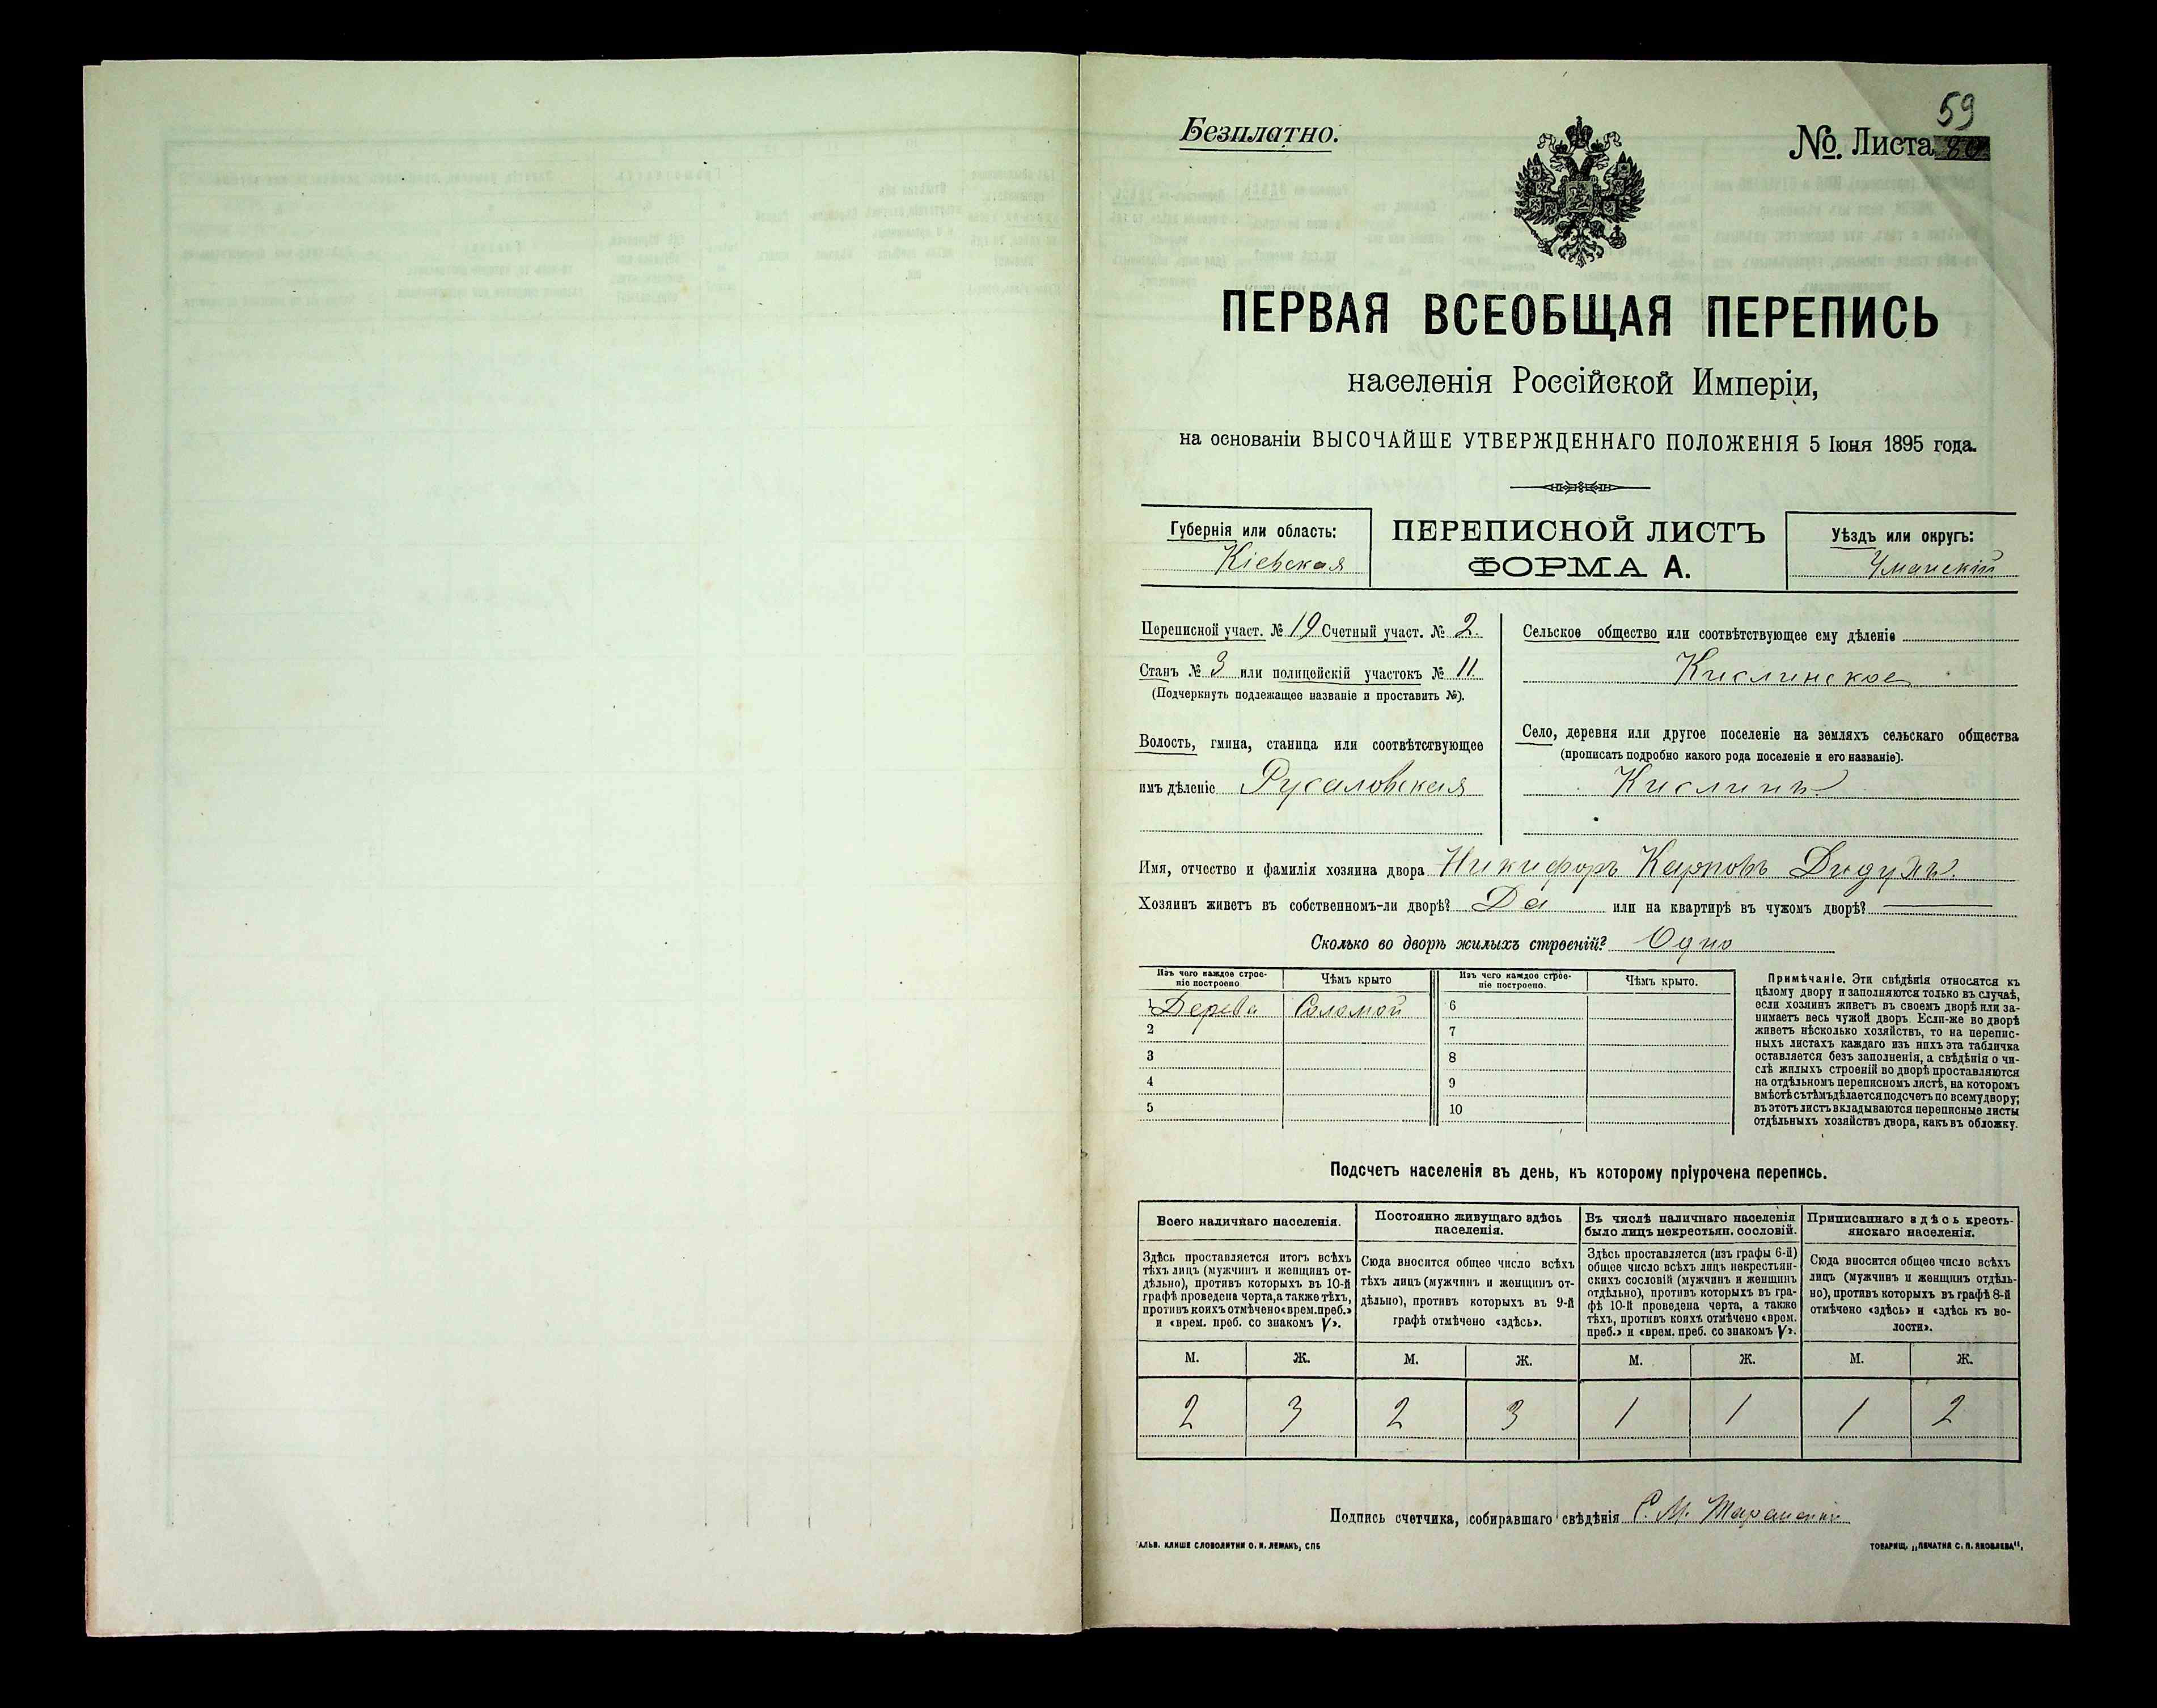 59
Безплатно.
№. Листа 80
ПЕРВАЯ ВСЕОБЩАЯ ПЕРЕПИСЬ
населенія Россійской Имперіи,
на основаніи ВЫСОЧАЙШЕ УТВЕРЖДЕННАГО ПОЛОЖЕНІЯ 5 Іюня 1895 года.
Губернія или область:
Кіевская
ПЕРЕПИСНОЙ ЛИСТЪ
ФОРМА А.
Уѣздъ или округъ:
Уманскій
Переписной участ. № 19 Счетный участ. № 2.
Станъ № 3 или полицейскій участокъ № 11.
(Подчеркнуть подлежащее названіе и проставить №).
Волость, гмина, станица или соотвѣтствующее
имъ дѣленіе Русаловская
Сельское общество или соотвѣтствующее ему дѣленіе
Кислинское
Село, деревня или другое поселеніе на земляхъ сельскаго общества
(прописать подробно какого рода поселеніе и его названіе).
Кислинъ
Имя, отчество и фамилія хозяина двора Никифоръ Карповъ Дидухъ
Хозяинъ живетъ въ собственномъ-ли дворѣ? Да или на квартирѣ въ чужомъ дворѣ?
Сколько во дворѣ жилыхъ строеній? Одно
Изъ чего каждое строе-
ніе построено.
Чѣмъ крыто
Изъ чего каждое строе-
ніе построено.
Чѣмъ крыто.
1 Дерева Соломой 6
2 7
3 8
4 9
5 10
Примѣчаніе. Эти свѣдѣнія относятся къ
цѣлому двору и заполняются только въ случаѣ,
если хозяинъ живетъ въ своемъ дворѣ или за-
нимаетъ весь чужой дворъ. Если-же во дворѣ
живетъ нѣсколько хозяйствъ, то на перепис-
ныхъ листахъ каждаго изъ нихъ эта табличка
оставляется безъ заполненія, а свѣдѣнія о чи-
слѣ жилыхъ строеній во дворѣ проставляются
на отдѣльномъ переписномъ листѣ, на которомъ
вмѣстѣ съ тѣмъ дѣлается подсчетъ по всему двору;
въ этотъ листъ вкладываются переписные листы
отдѣльныхъ хозяйствъ двора, какъ въ обложку.
Подсчетъ населенія въ день, къ которому пріурочена перепись.
Всего наличнаго населенія.
Здѣсь проставляется итогъ всѣхъ
тѣхъ лицъ (мужчинъ и женщинъ от-
дѣльно), противъ которыхъ въ 10-й
графѣ проведена черта, а также тѣхъ,
противъ коихъ отмѣчено «врем. преб.»
и «врем. преб. со знакомъ V».
Постоянно живущаго здѣсь
населенія.
Сюда вносится общее число всѣхъ
тѣхъ лицъ (мужчинъ и женщинъ от-
дѣльно), противъ которыхъ въ 9-й
графѣ отмѣчено «здѣсь».
Въ числѣ наличнаго населенія
было лицъ некрестьян. сословій.
Здѣсь проставляется (изъ графы 6-й)
общее число всѣхъ лицъ некрестьян-
скихъ сословій (мужчинъ и женщинъ
отдѣльно), противъ которыхъ въ гра-
фѣ 10-й проведена черта, а также
тѣхъ, противъ коихъ отмѣчено «врем.
преб.» и «врем. преб. со знакомъ V».
Приписаннаго здѣсь кресть-
янскаго населенія.
Сюда вносится общее число всѣхъ
лицъ (мужчинъ и женщинъ отдѣль-
но), противъ которыхъ въ графѣ 8-й
отмѣчено «здѣсь» и «здѣсь къ во-
лости».
М. Ж. М. Ж. М. Ж. М. Ж.
2 3 2 3 1 1 1 2
Подпись счетчика, собиравшаго свѣдѣнія С. М.
ГАЛЬВ. КЛИШЕ СЛОВОЛИТНИ О. И. ЛЕМАНЪ, СПБ
ТОВАРИЩ. „ПЕЧАТНЯ С. П. ЯКОВЛЕВА",